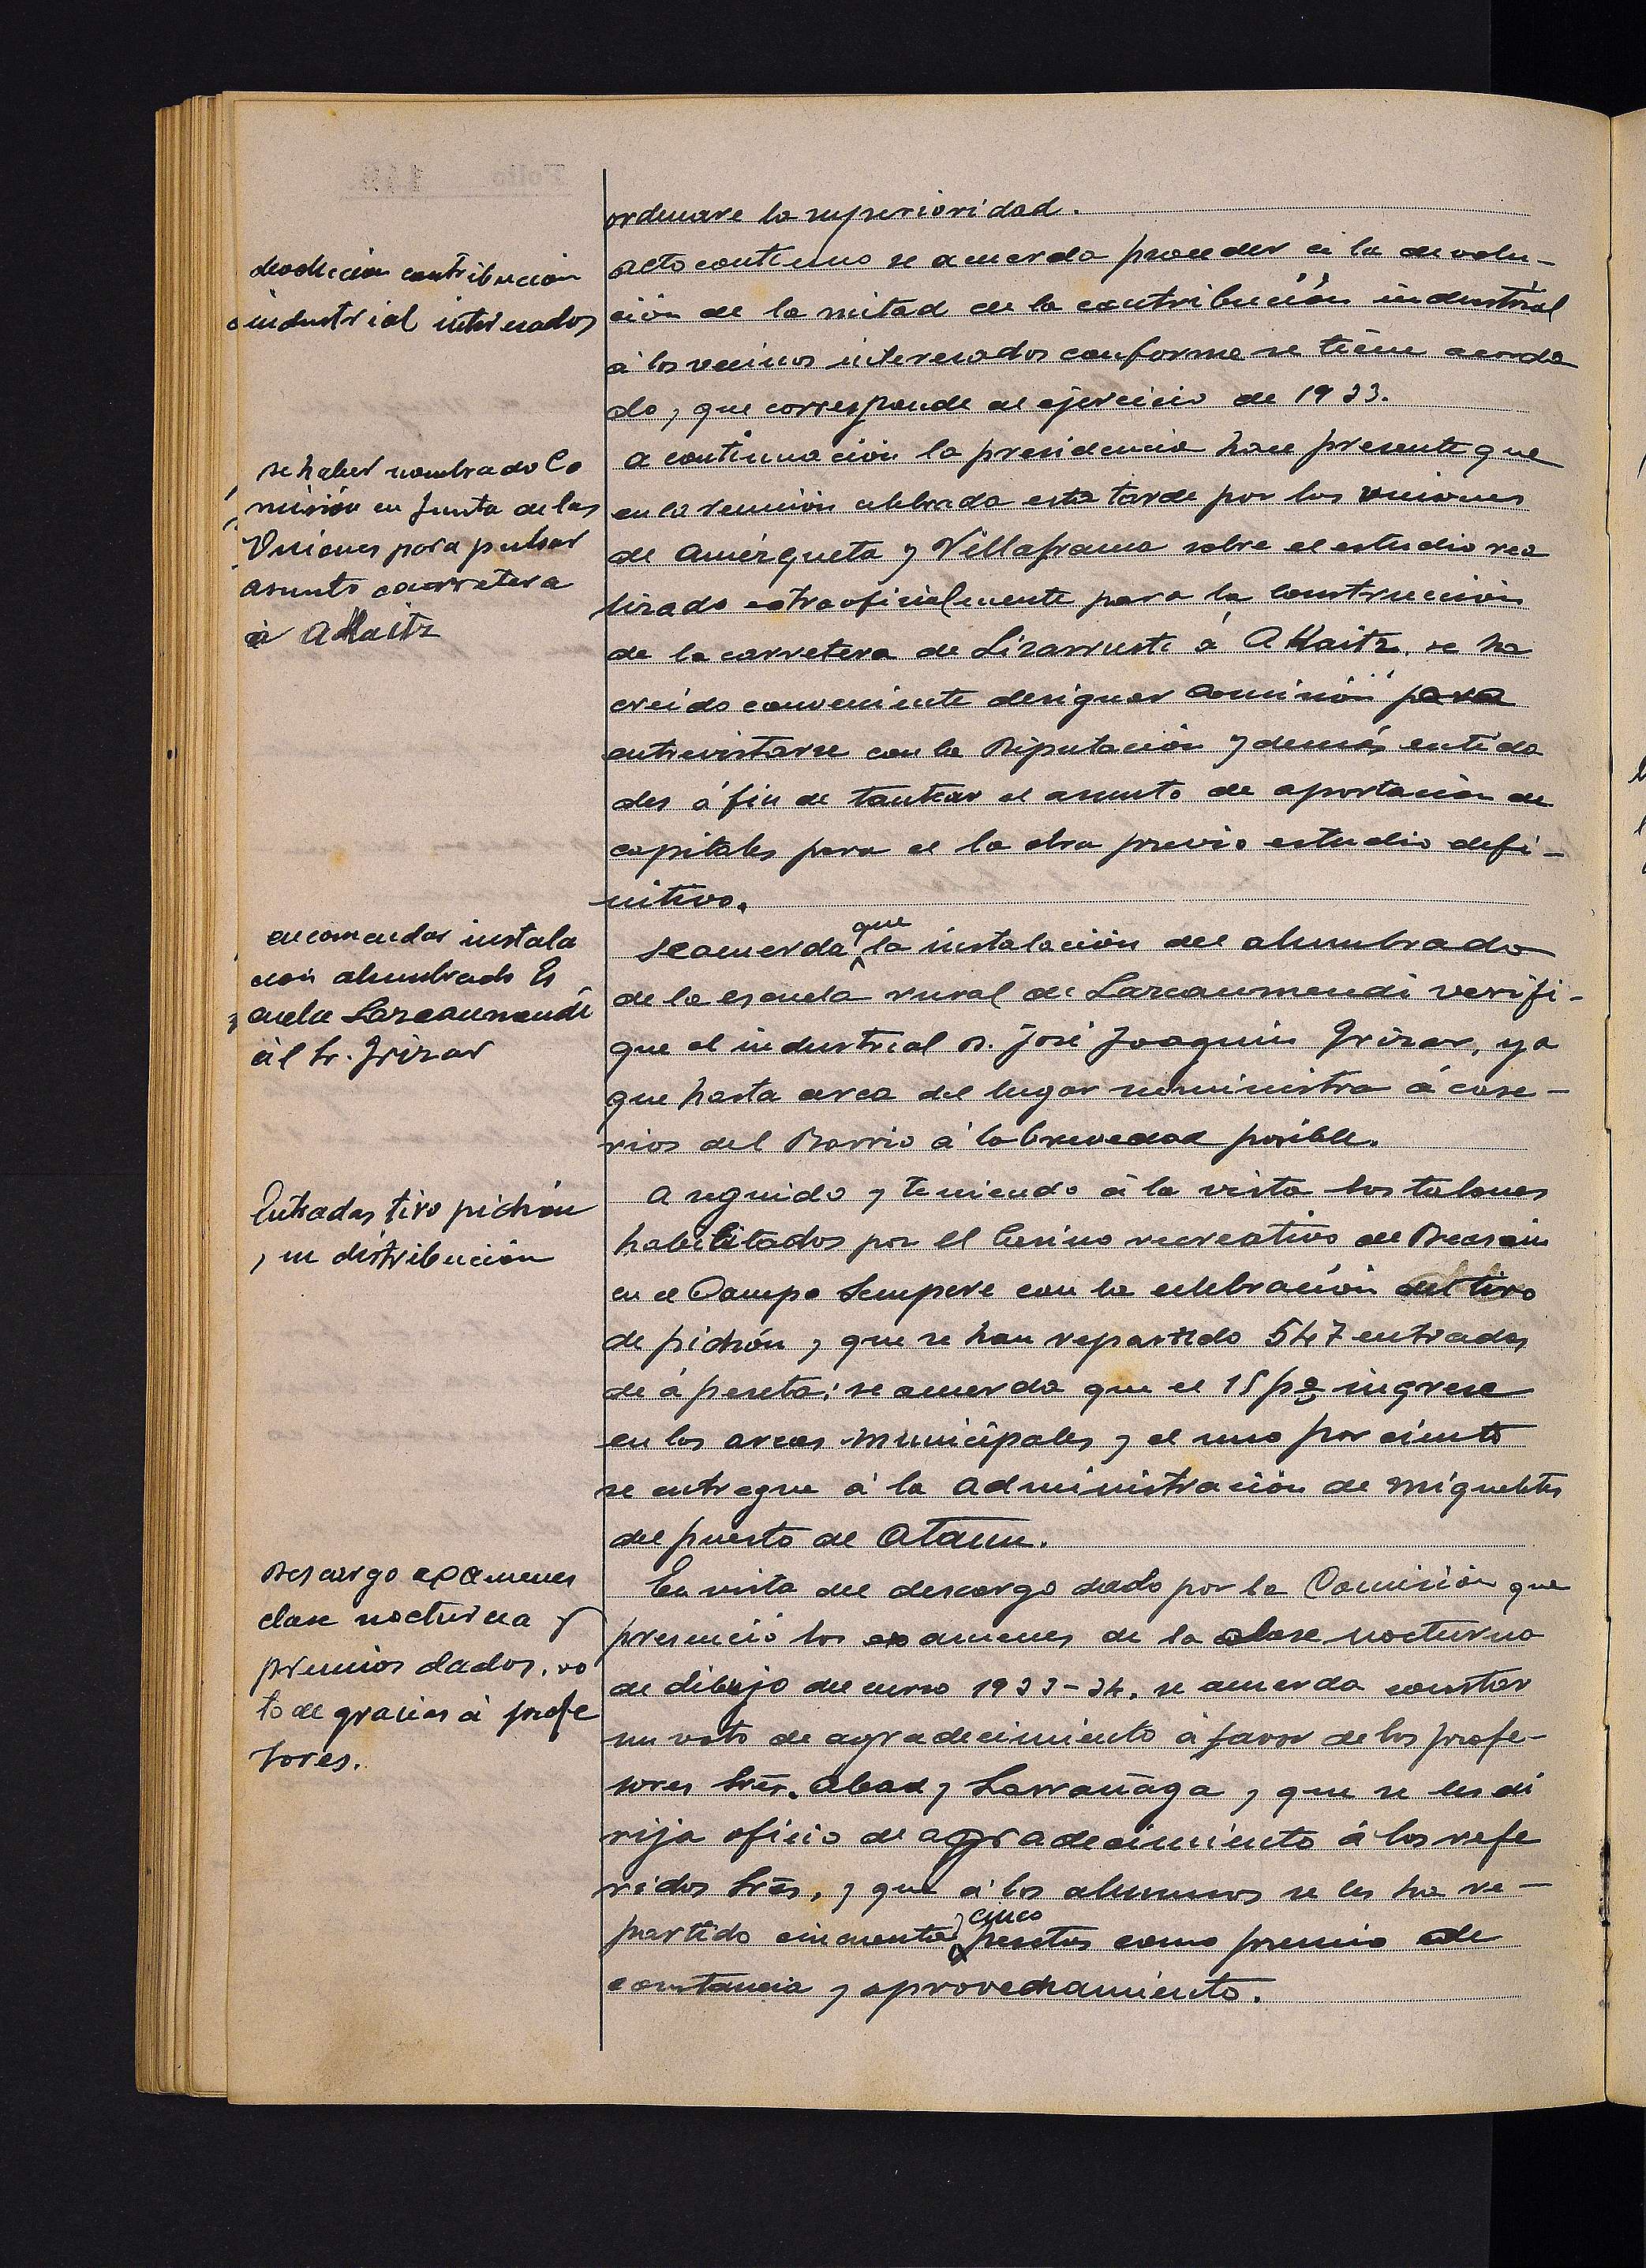 ordenare la superioridad.
devolución contribución
industrial interesados
acto continuo se acuerda proceder á la devolu-
ción de la mitad de la contribución industrial
á los vecinos interesados conforme se tiene acorda
do, que corresponde al ejercicio de 1933.
se haber nombrado Co
misión en Junta de las
Uniones para pulsar
asunto carretera
á Alliaitz
a continuación la presidencia hace presente que
en la reunión celebrada esta tarde por las uniones
de Amézqueta y Villafranca sobre el estudio rea
lizado extraoficialmente para la construcción
de la carretera de Lizarrusti á Alliaitz, se ha
creido conveniente designar comisión para
entrevistarse con la Diputación y demás entida
des á fin de tantear el asunto de aportación de
capitales para el la obra previo estudio defi-
nitivo.
encomendar instala
ción alumbrado Es
cuela Lazcaumendi
al Sr. Irizar
se acuerda que la instalación del alumbrado
de la escuela rural de Lazcaumendi verifi-
que el industrial D. José Joaquin Irizar, ya
que hasta cerca del lugar suministra á case-
rios del Barrio á la brevedad posible.
Entradas tiro pichón
y su distribución
a seguido y teniendo á la vista los talones
habilitados por el Casino recreativo de Beasain
en el Campo Sempere con la celebración del tiro
de pichón, y que se han repartido 547 entradas
de á peseta; se acuerda que el 15 p% ingrese
en las arcas municipales y el uno por ciento
se entregue á la administración de miqueletes
del puesto de Ataun.
Descargo exámenes
clase nocturna y
premios dados, vo
to de gracias á profe
sores.
En vista del descargo dado por la Comisión que
presenció los exámenes de la clase nocturna
de dibujo del curso 1933-34, se acuerda constar
un voto de agradecimiento á favor de los profe-
sores Srés. Abad y Larrañaga, y que se les di
rija oficio de agradecimiento á los refe
ridos Srés, y que á los alumnos se les ha re-
partido cincuenta y cinco pesetas como premio de
constancia y aprovechamiento.